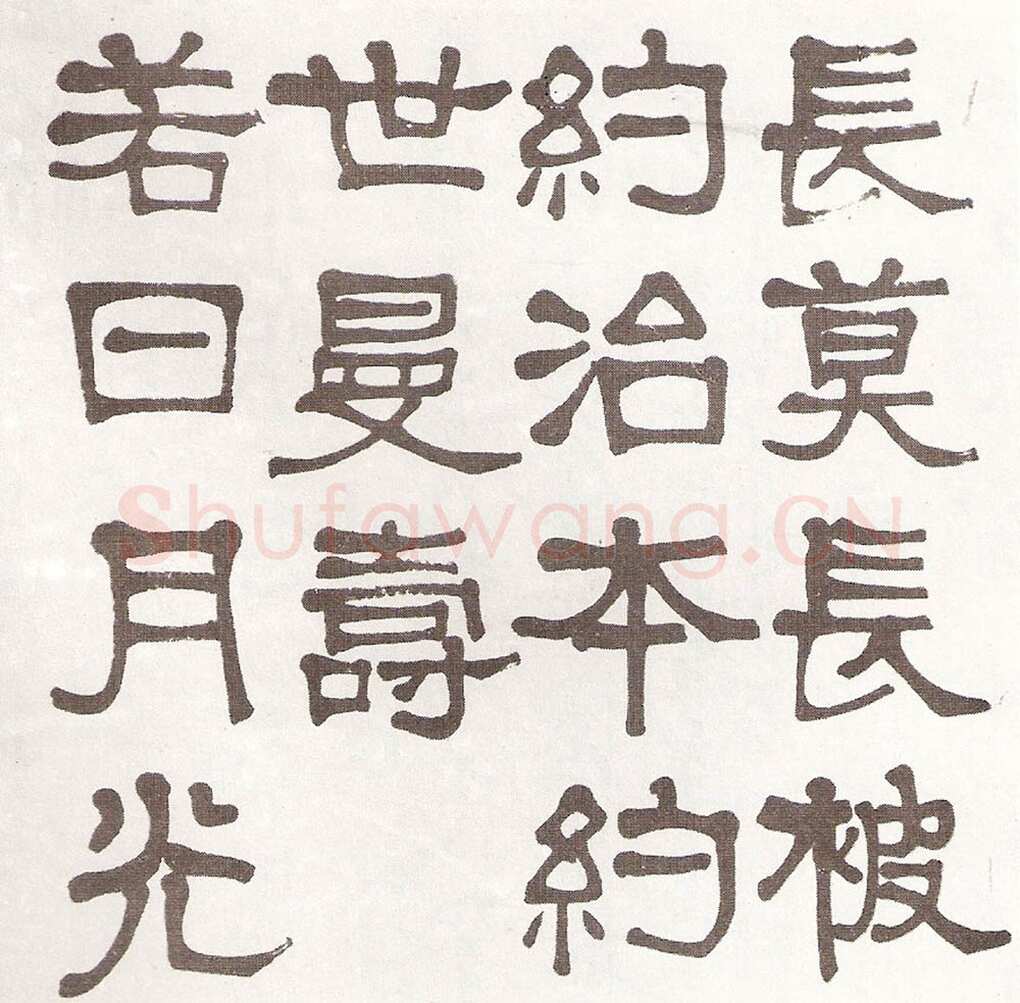 長莫長被
約治本約
世曼壽
若日月光
Shufawang.CN